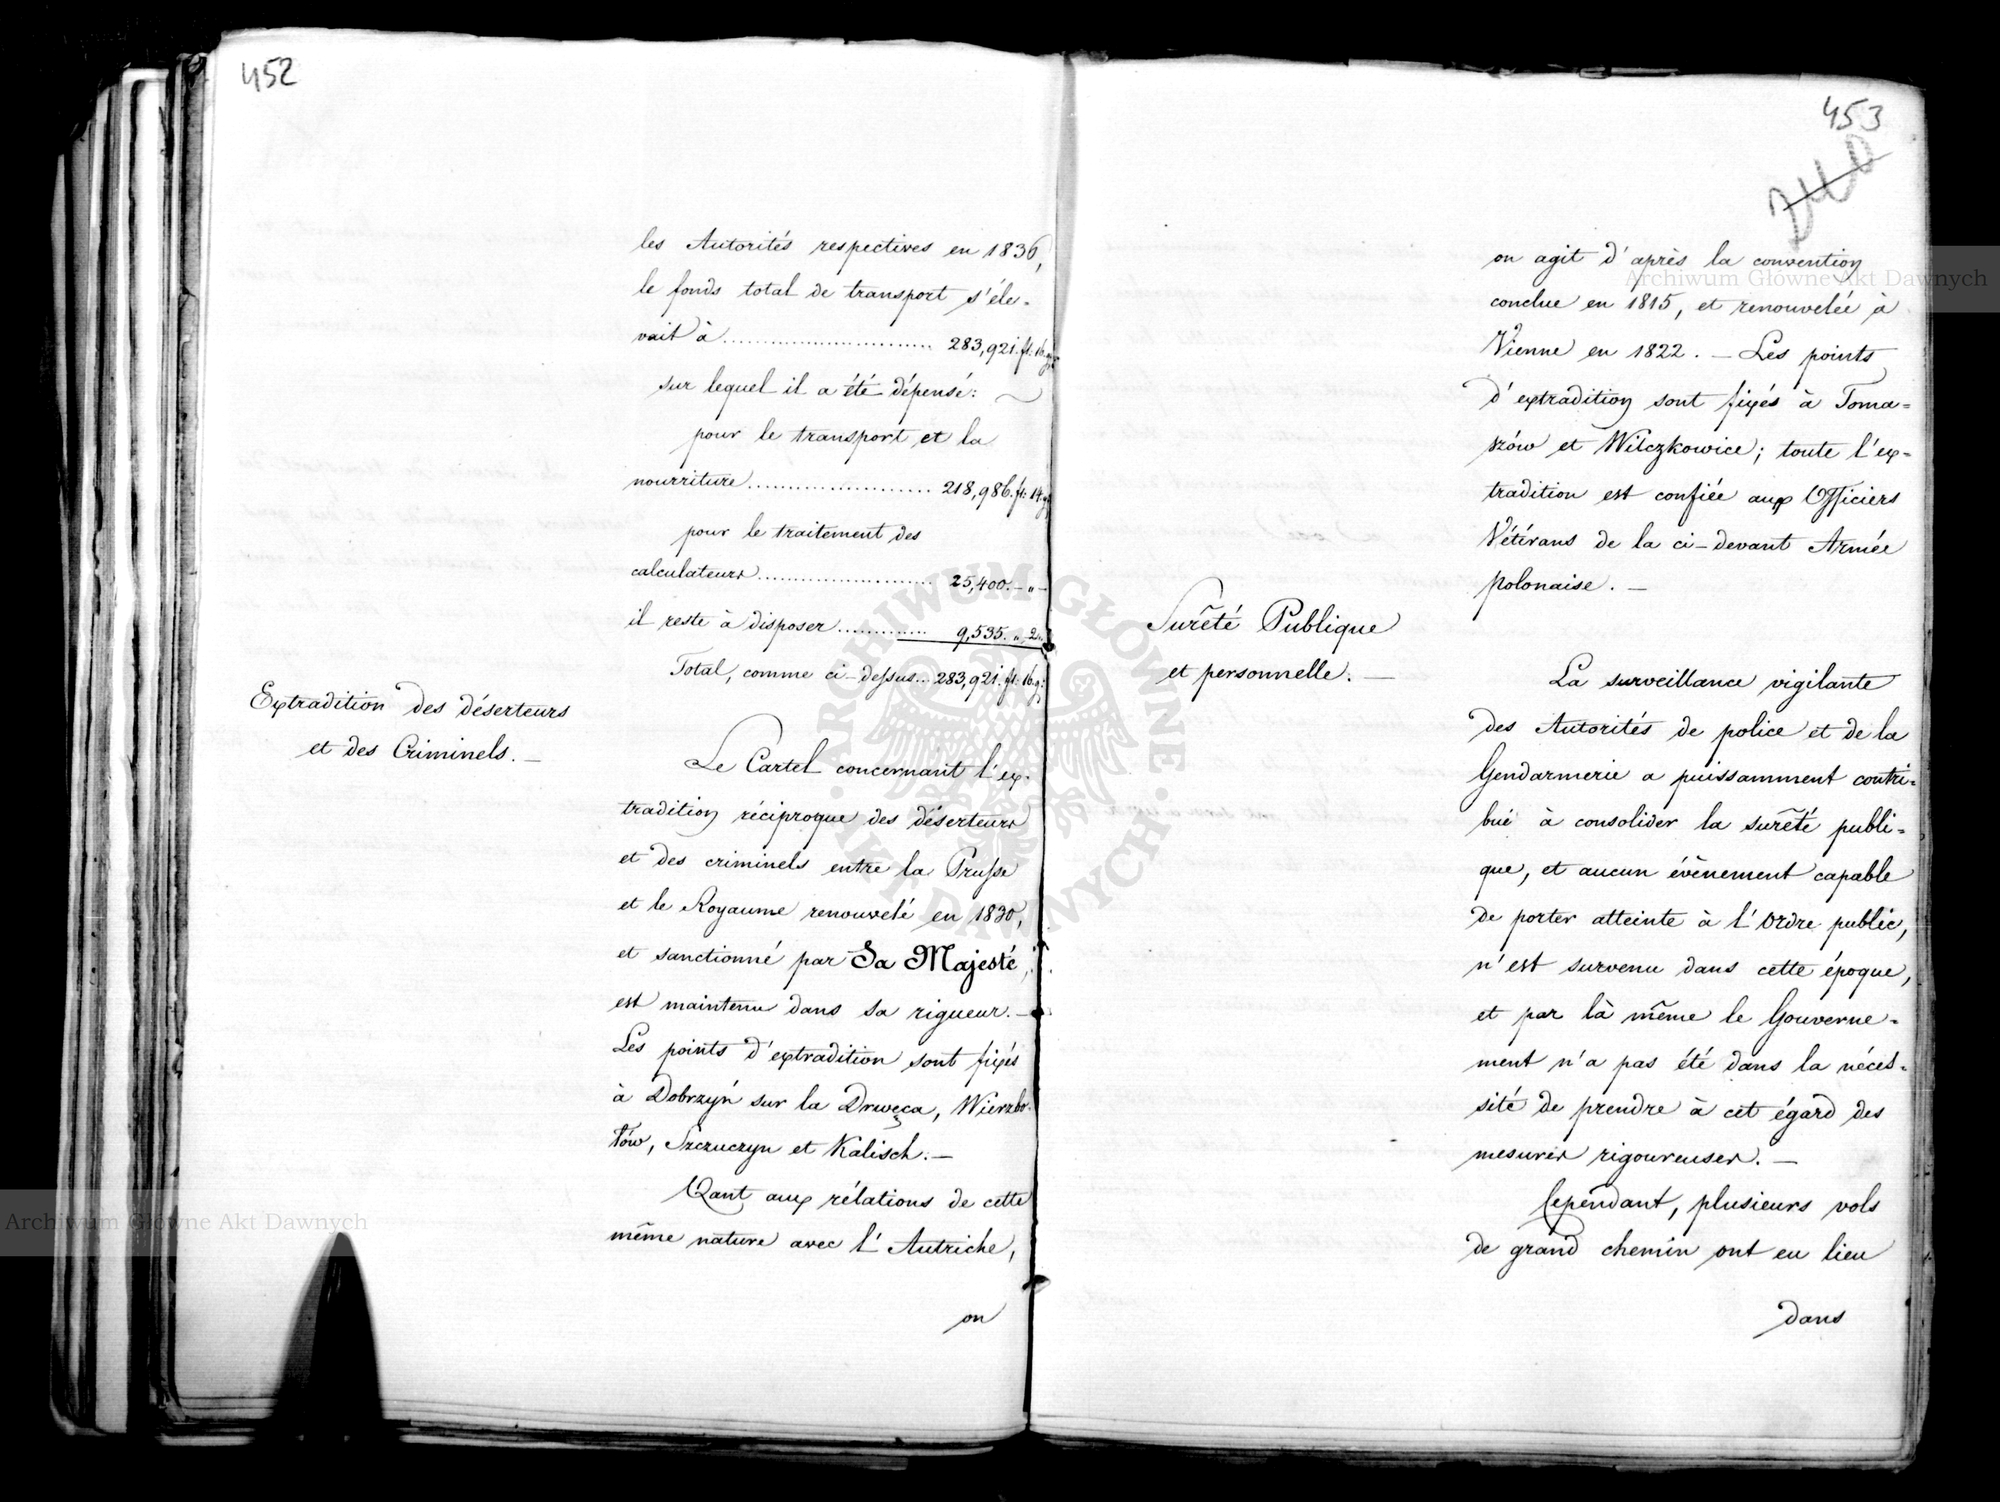 452
les Autorités respectives en 1836,
le fonds total de transport s'éle-
vait à .............................. 283,921. fl: 16. gr:
sur lequel il a été dépensé:
pour le transport et la
nourriture .......................... 218,986. fl: 14. gr
pour le traitement des
calculateurs ........................ 25,400. — " —
il reste à disposer ............. 9,535. " 2 "
Total, comme ci-dessus... 283,921. fl: 16. g:
Extradition des déserteurs
et des Criminels. —
Le Cartel concernant l'ex-
tradition réciproque des déserteurs
et des criminels entre la Prusse
et le Royaume renouvelé en 1830,
et sanctionné par Sa Majesté,
est maintenu dans sa rigueur. —
Les points d'extradition sont fixés
à Dobrzyń sur la Drwęca, Wierzbo-
łów, Szczuczyn et Kalisch. —
Qant aux rélations de cette
même nature avec l'Autriche,
on
453
240
on agit d'après la convention
conclue en 1815, et renouvelée à
Vienne en 1822. — Les points
d'extradition sont fixés à Toma-
szów et Wilczkowice; toute l'ex-
tradition est confiée aux Officiers
Vétérans de la ci-devant Armée
polonaise. —
Sureté Publique
et personnelle. —
La surveillance vigilante
des Autorités de police et de la
Gendarmerie a puissamment contri-
bué à consolider la sureté publi-
que, et aucun évènement capable
de porter atteinte à l'ordre public,
n'est survenu dans cette époque,
et par là même le Gouverne-
ment n'a pas été dans la néces-
sité de prendre à cet égard des
mesures rigoureuses. —
Cependant, plusieurs vols
de grand chemin ont eu lieu
dans
Archiwum Główne Akt Dawnych
Archiwum Główne Akt Dawnych
ARCHIWUM GŁÓWNE · AKT DAWNYCH ·